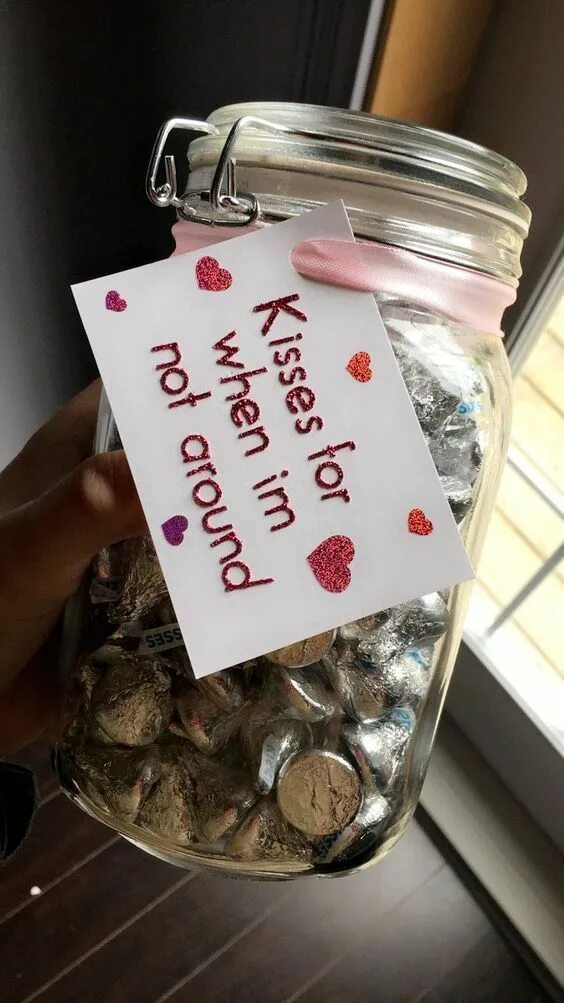 Kisses for
when im
not around
SSES